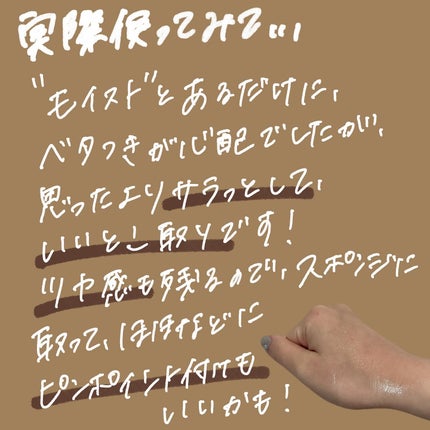 実際使ってみて...
"モイスト"とあるだけに、
ベタつきが心配でしたが、
思ったよりサラっとして、
いいとこ取りです!
ツヤ感も残るので、スポンジに
取って、ほほなどに
ピンポイント付けも
いいかも!